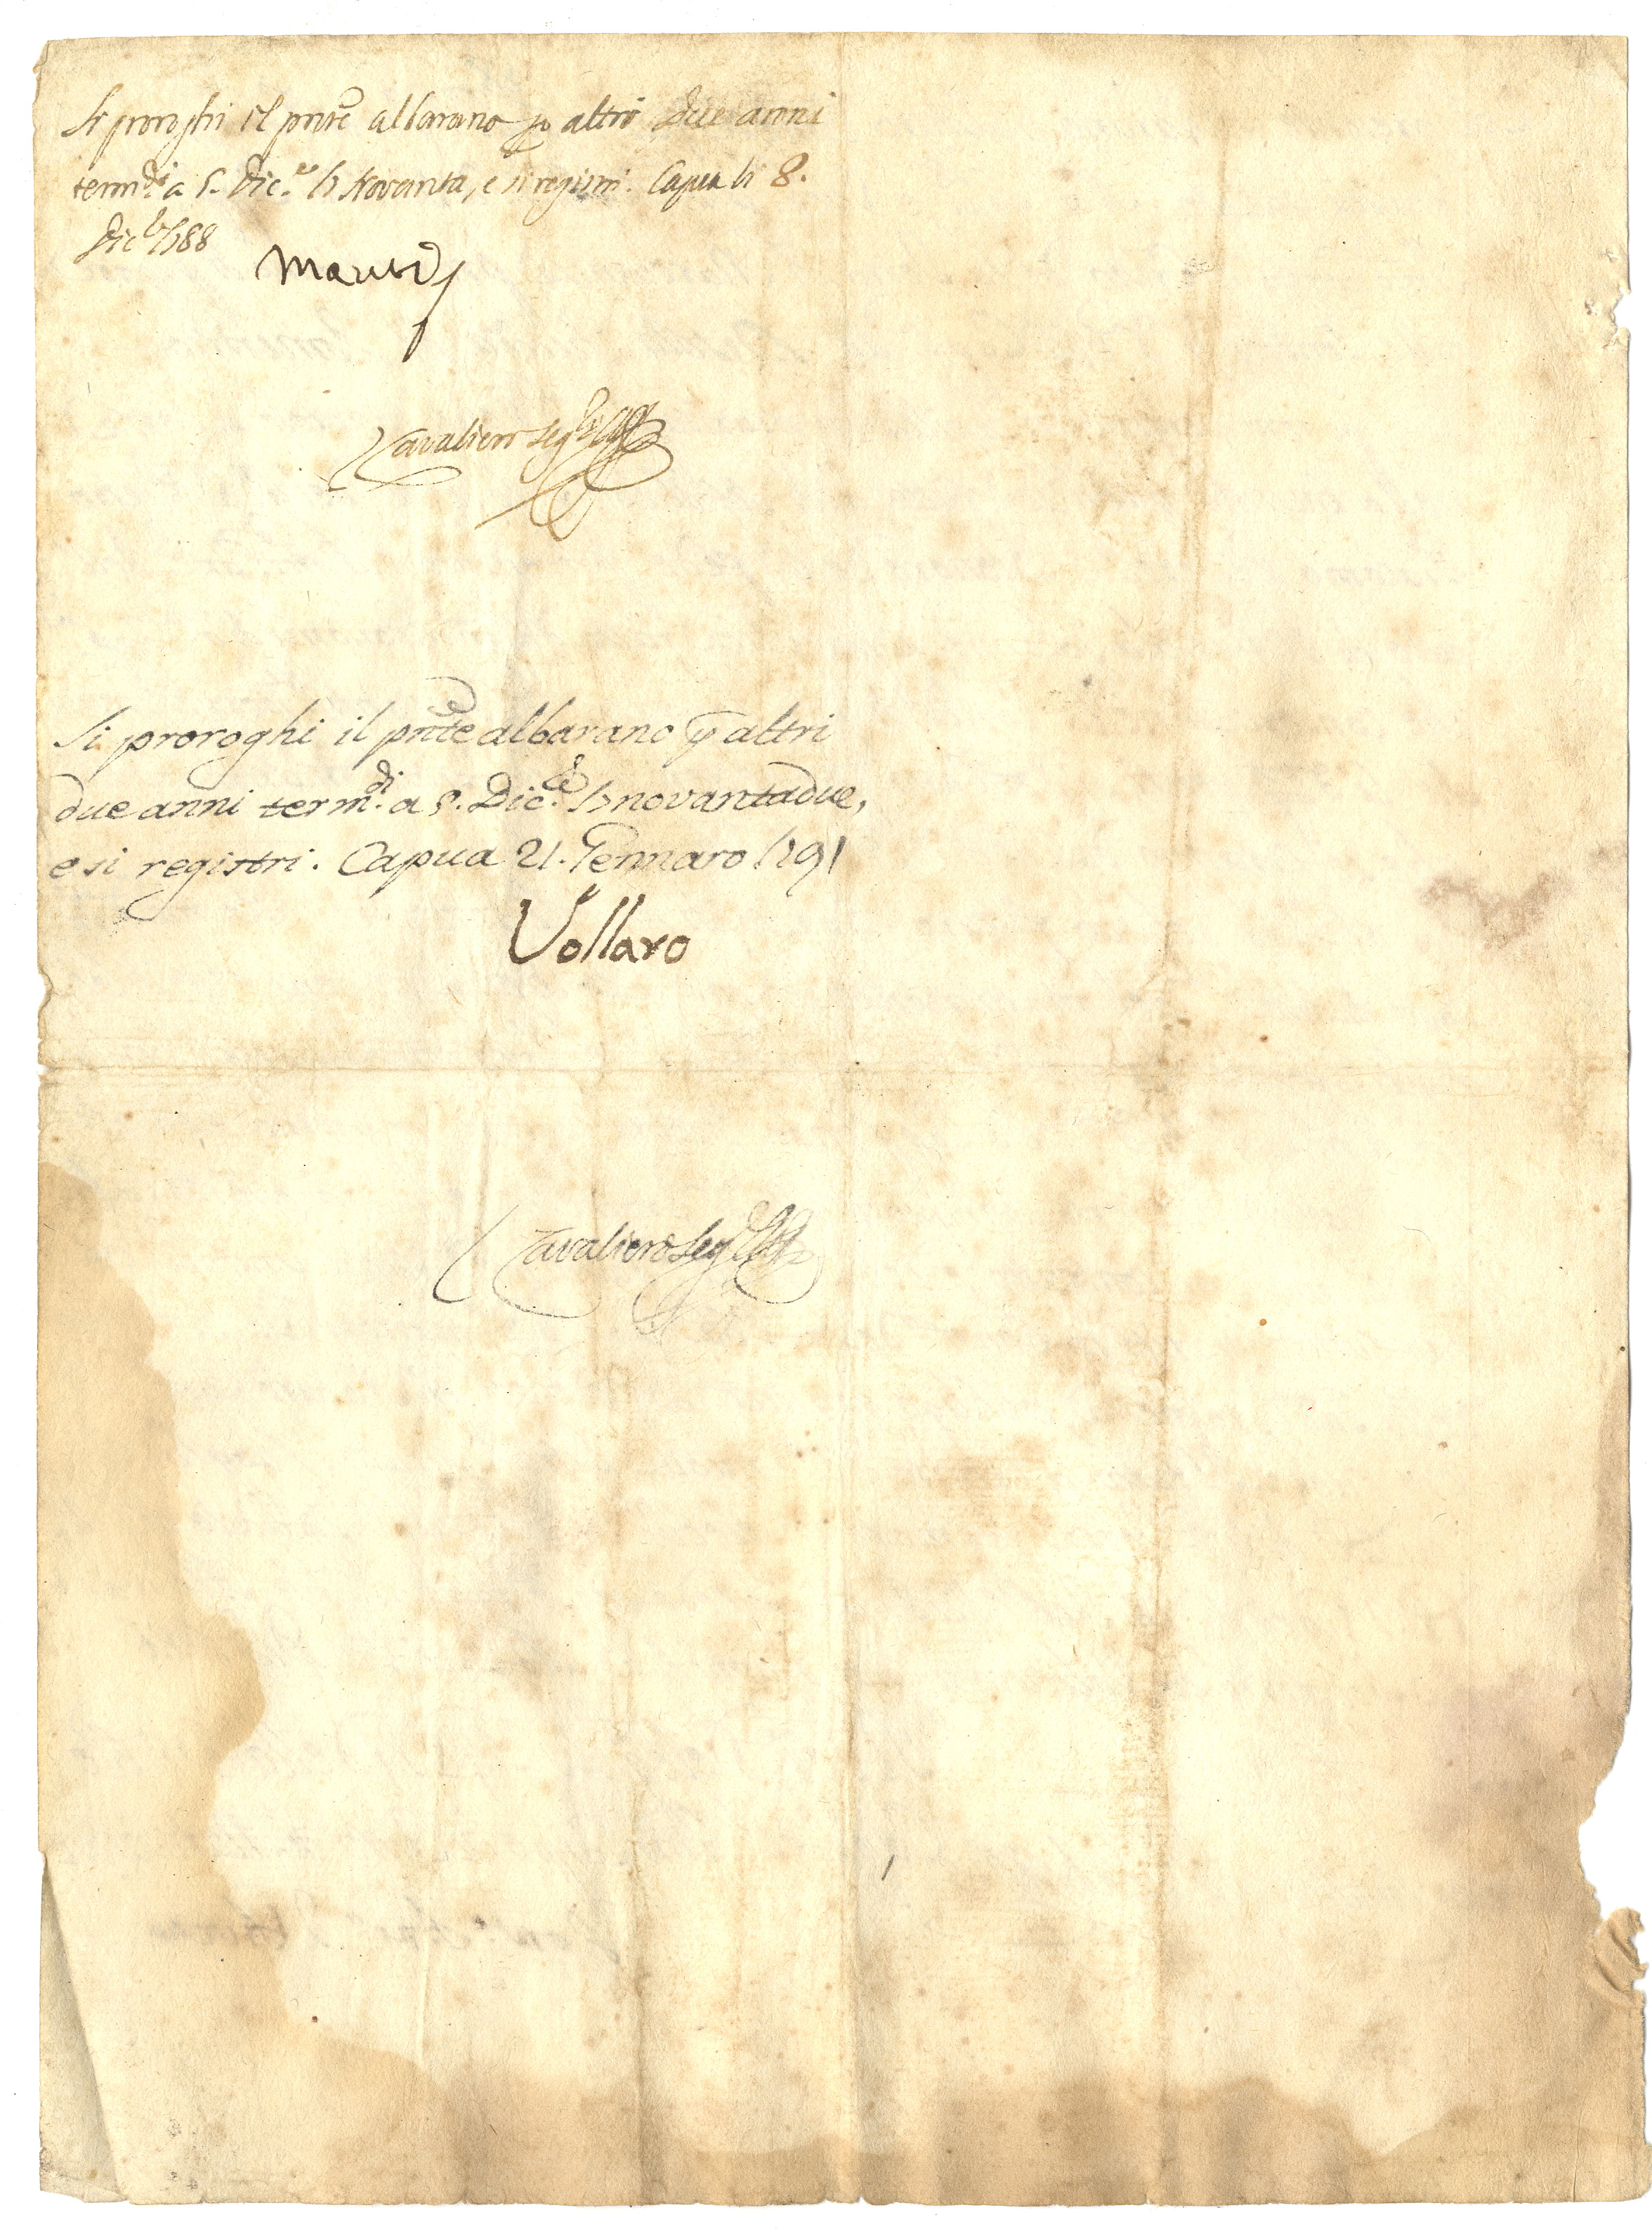 Si proroghi il pnte albarano p altri due anni
term.di a 5. Dic.e 17Novanta, e si registri. Capua li 8.
Dicbe 1788
Cavaliero Seg
Si proroghi il pnte albarano p altri
due anni term.di a 5. Dic.e 17novantadue,
e si registri. Capua 21. Gennaro 1791
Vollaro
Cavaliero Seg